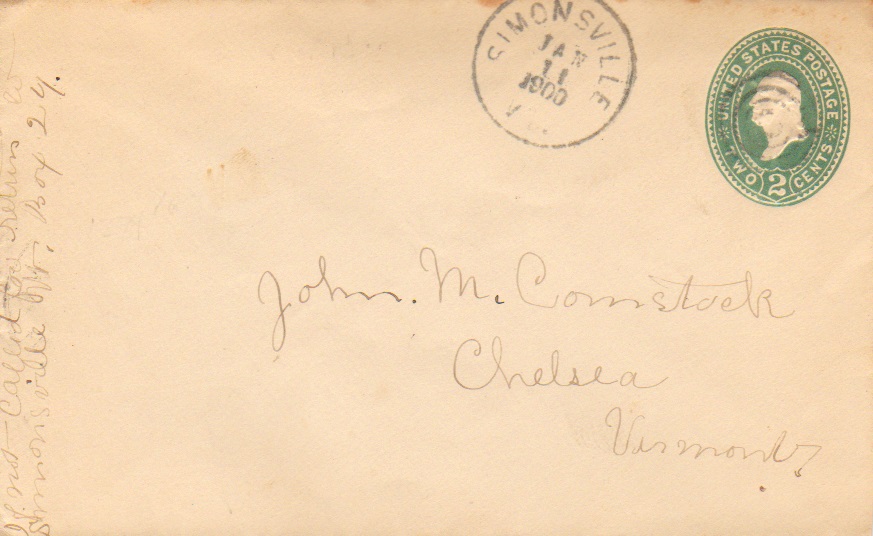 SIMONSVILLE
JAN
11
1900
UNITED STATES POSTAGE
TWO 2 CENTS
John. M. Comstock
Chelsea
Vermont
If not Called for return to
Simonsville Vt. Box 24.